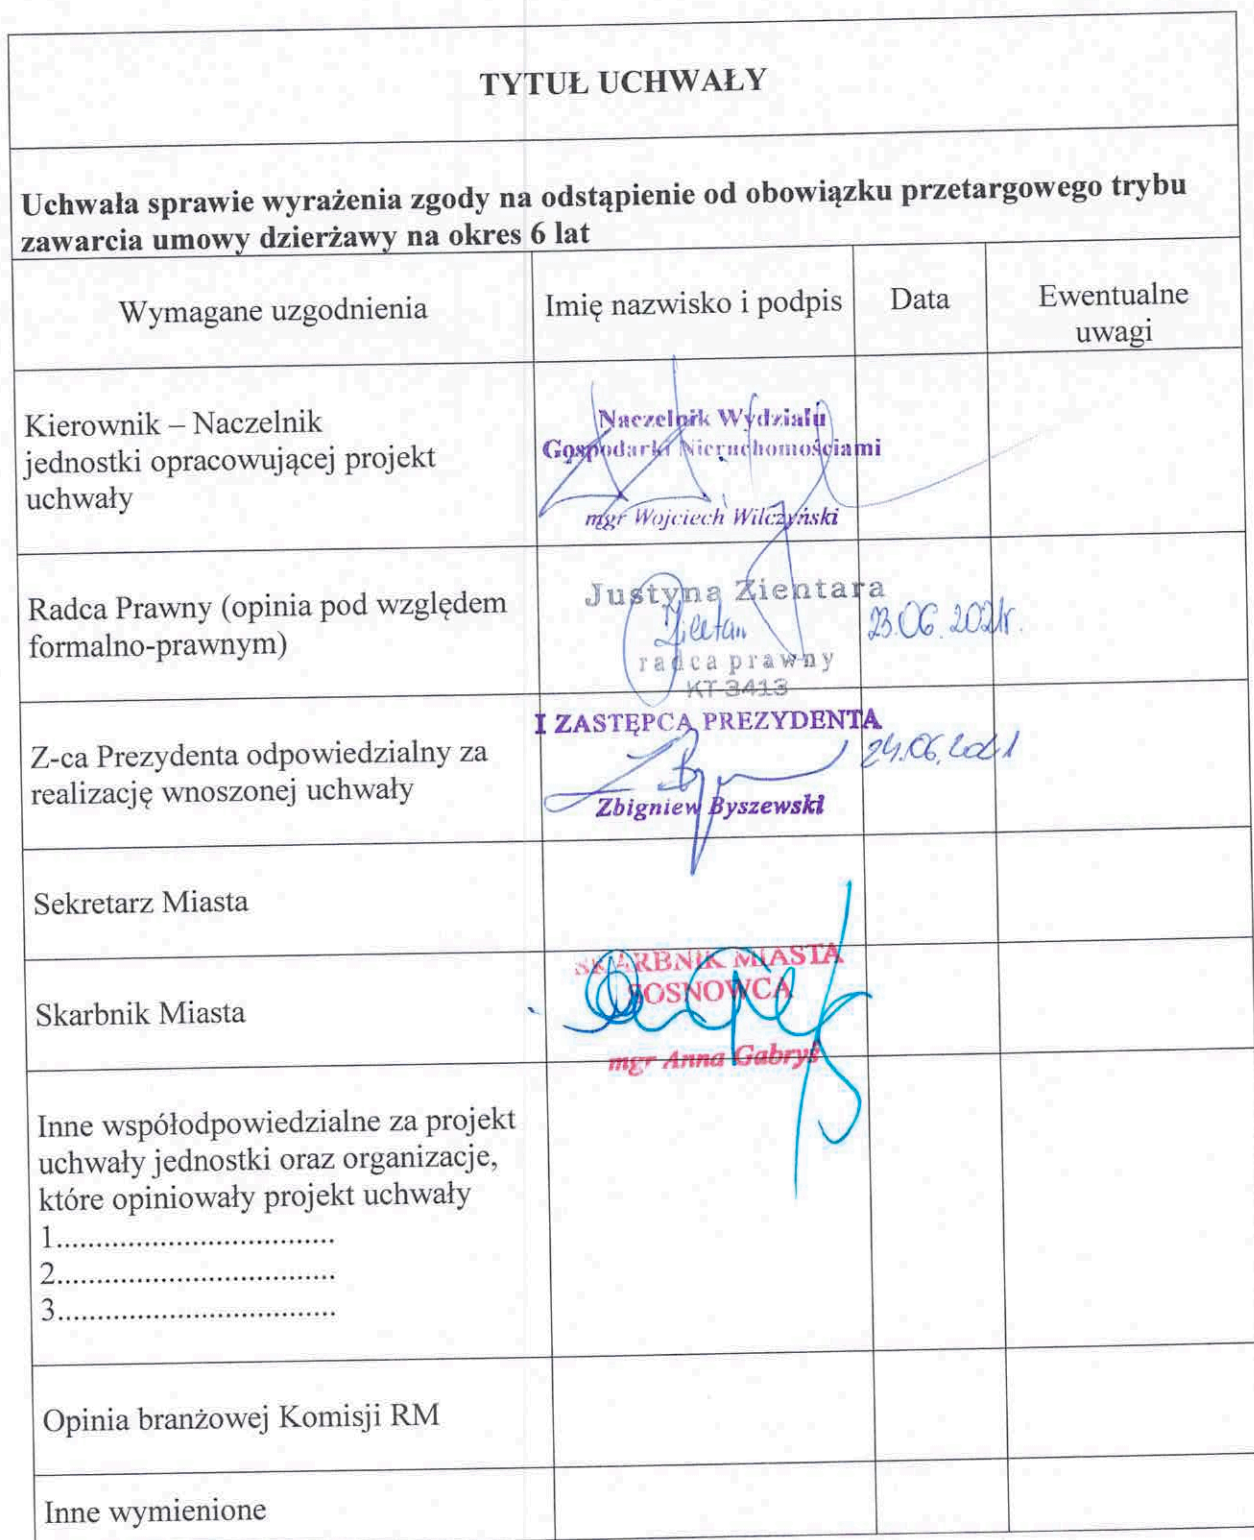 TYTUŁ UCHWAŁY
Uchwała sprawie wyrażenia zgody na odstąpienie od obowiązku przetargowego trybu
zawarcia umowy dzierżawy na okres 6 lat
Wymagane uzgodnienia
Imię nazwisko i podpis
Data
Ewentualne
uwagi
Kierownik – Naczelnik
jednostki opracowującej projekt
uchwały
Naczelnik Wydziału
Gospodarki Nieruchomościami
mgr Wojciech Wilczyński
Radca Prawny (opinia pod względem
formalno-prawnym)
Justyna Zientara
radca prawny
KT-3413
23.06.2021r.
Z-ca Prezydenta odpowiedzialny za
realizację wnoszonej uchwały
I ZASTĘPCA PREZYDENTA
Zbigniew Byszewski
24.06.2021
Sekretarz Miasta
Skarbnik Miasta
SKARBNIK MIASTA
SOSNOWCA
mgr Anna Gabryś
Inne współodpowiedzialne za projekt
uchwały jednostki oraz organizacje,
które opiniowały projekt uchwały
1..................................
2..................................
3..................................
Opinia branżowej Komisji RM
Inne wymienione